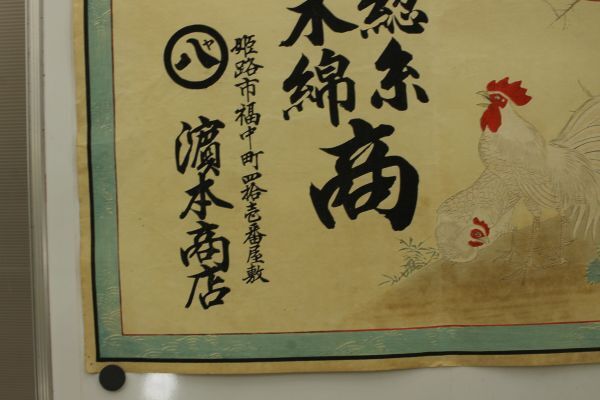 総糸
木綿
商
姫路市福中町四拾壱番屋敷
八ヤ
濱本商店